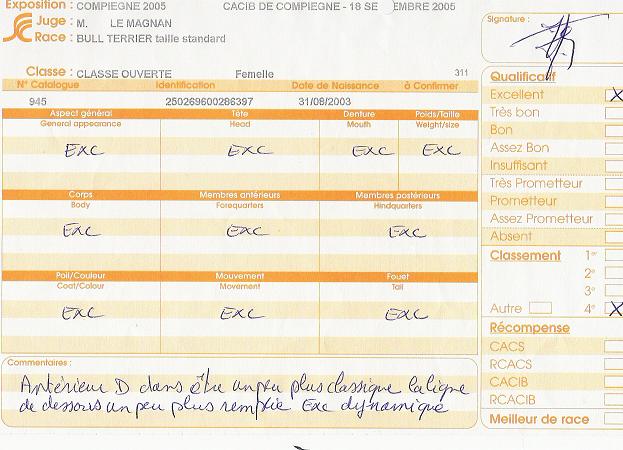 Exposition : COMPIEGNE 2005 CACIB DE COMPIEGNE - 18 SE EMBRE 2005
Juge : M. LE MAGNAN
Race : BULL TERRIER taille standard
Signature :
Classe : CLASSE OUVERTE Femelle 311
N° Catalogue Identification Date de Naissance à Confirmer
945 250269600286397 31/08/2003
Aspect général Tête Denture Poids/Taille
General appearance Head Mouth Weight/size
EXC EXC EXC EXC
Corps Membres antérieurs Membres postérieurs
Body Forequarters Hindquarters
EXC EXC EXC
Poil/Couleur Mouvement Fouet
Coat/Colour Movement Tail
EXC EXC EXC
Commentaires :
Antérieur D dans être un peu plus classique la ligne
de dessous un peu plus remplie Exc dynamique
Qualificatif
Excellent X
Très bon
Bon
Assez Bon
Insuffisant
Très Prometteur
Prometteur
Assez Prometteur
Absent
Classement 1er
2e
3e
Autre 4e X
Récompense
CACS
RCACS
CACIB
RCACIB
Meilleur de race